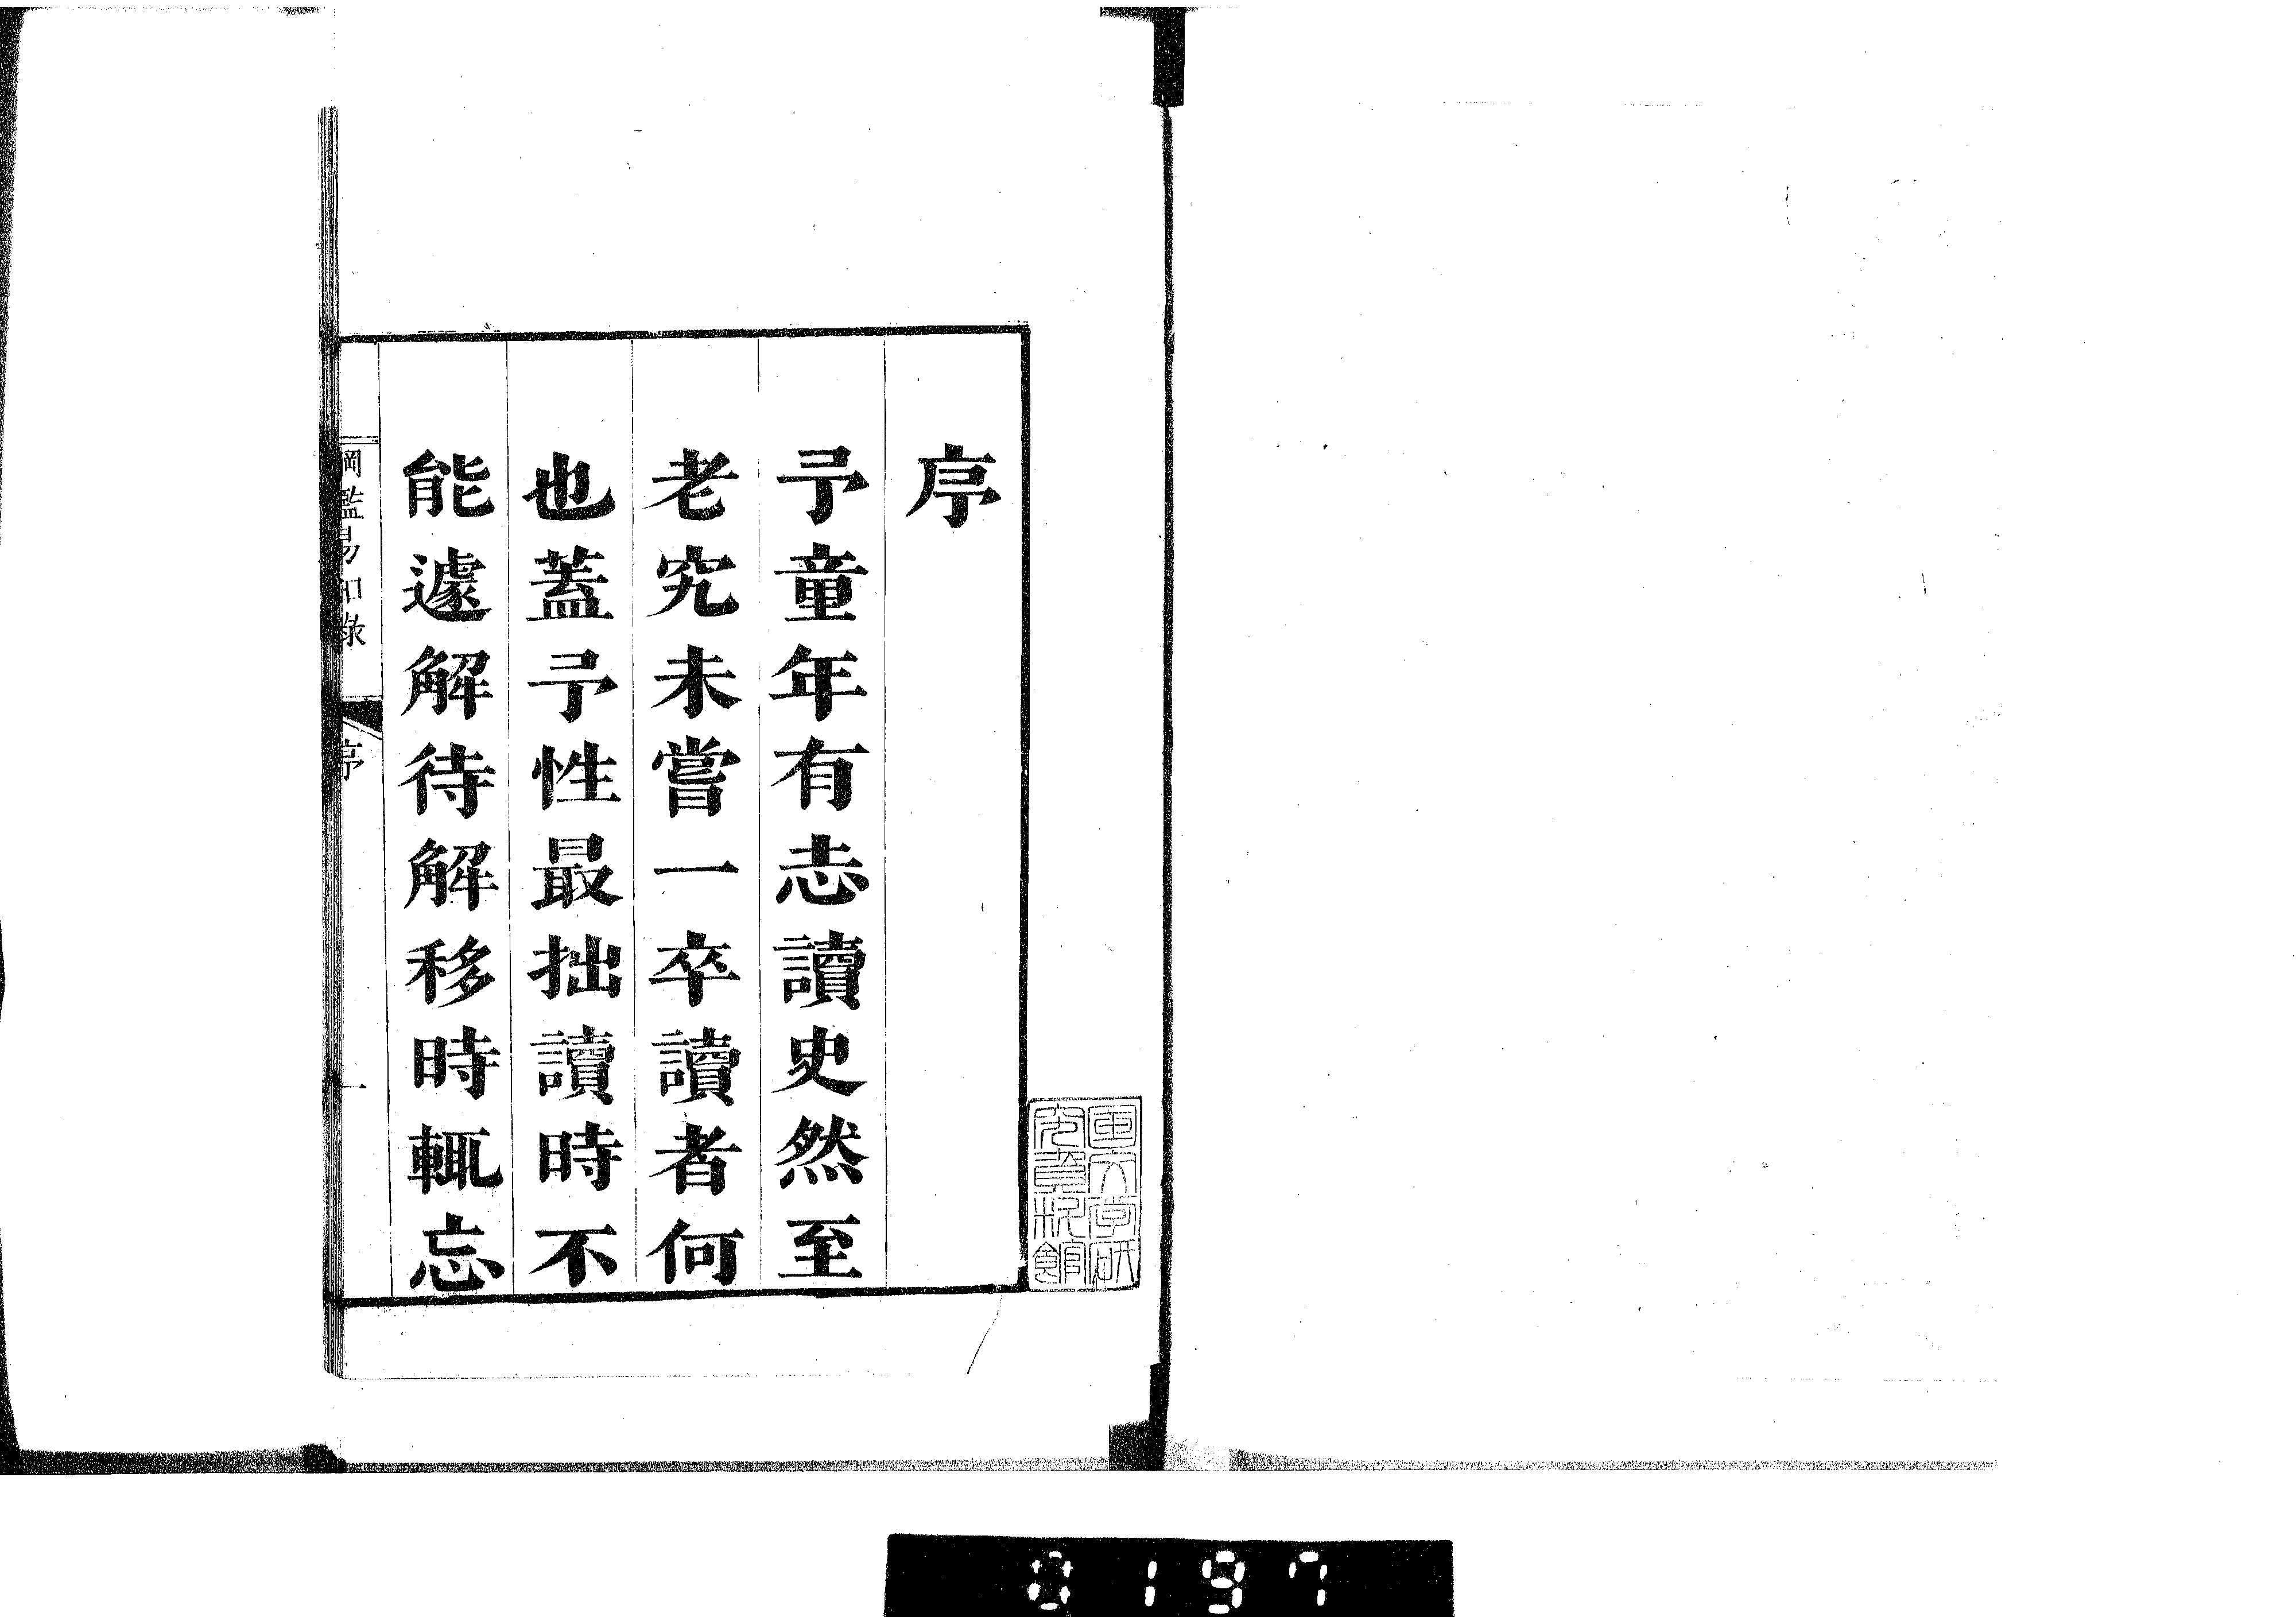 序
予童年有志讀史然至
老究未嘗一卒讀者何
也蓋予性最拙讀時不
能遽解待解移時輒忘
綱鑑易知錄
序
一
國文學研
究資料館
0197